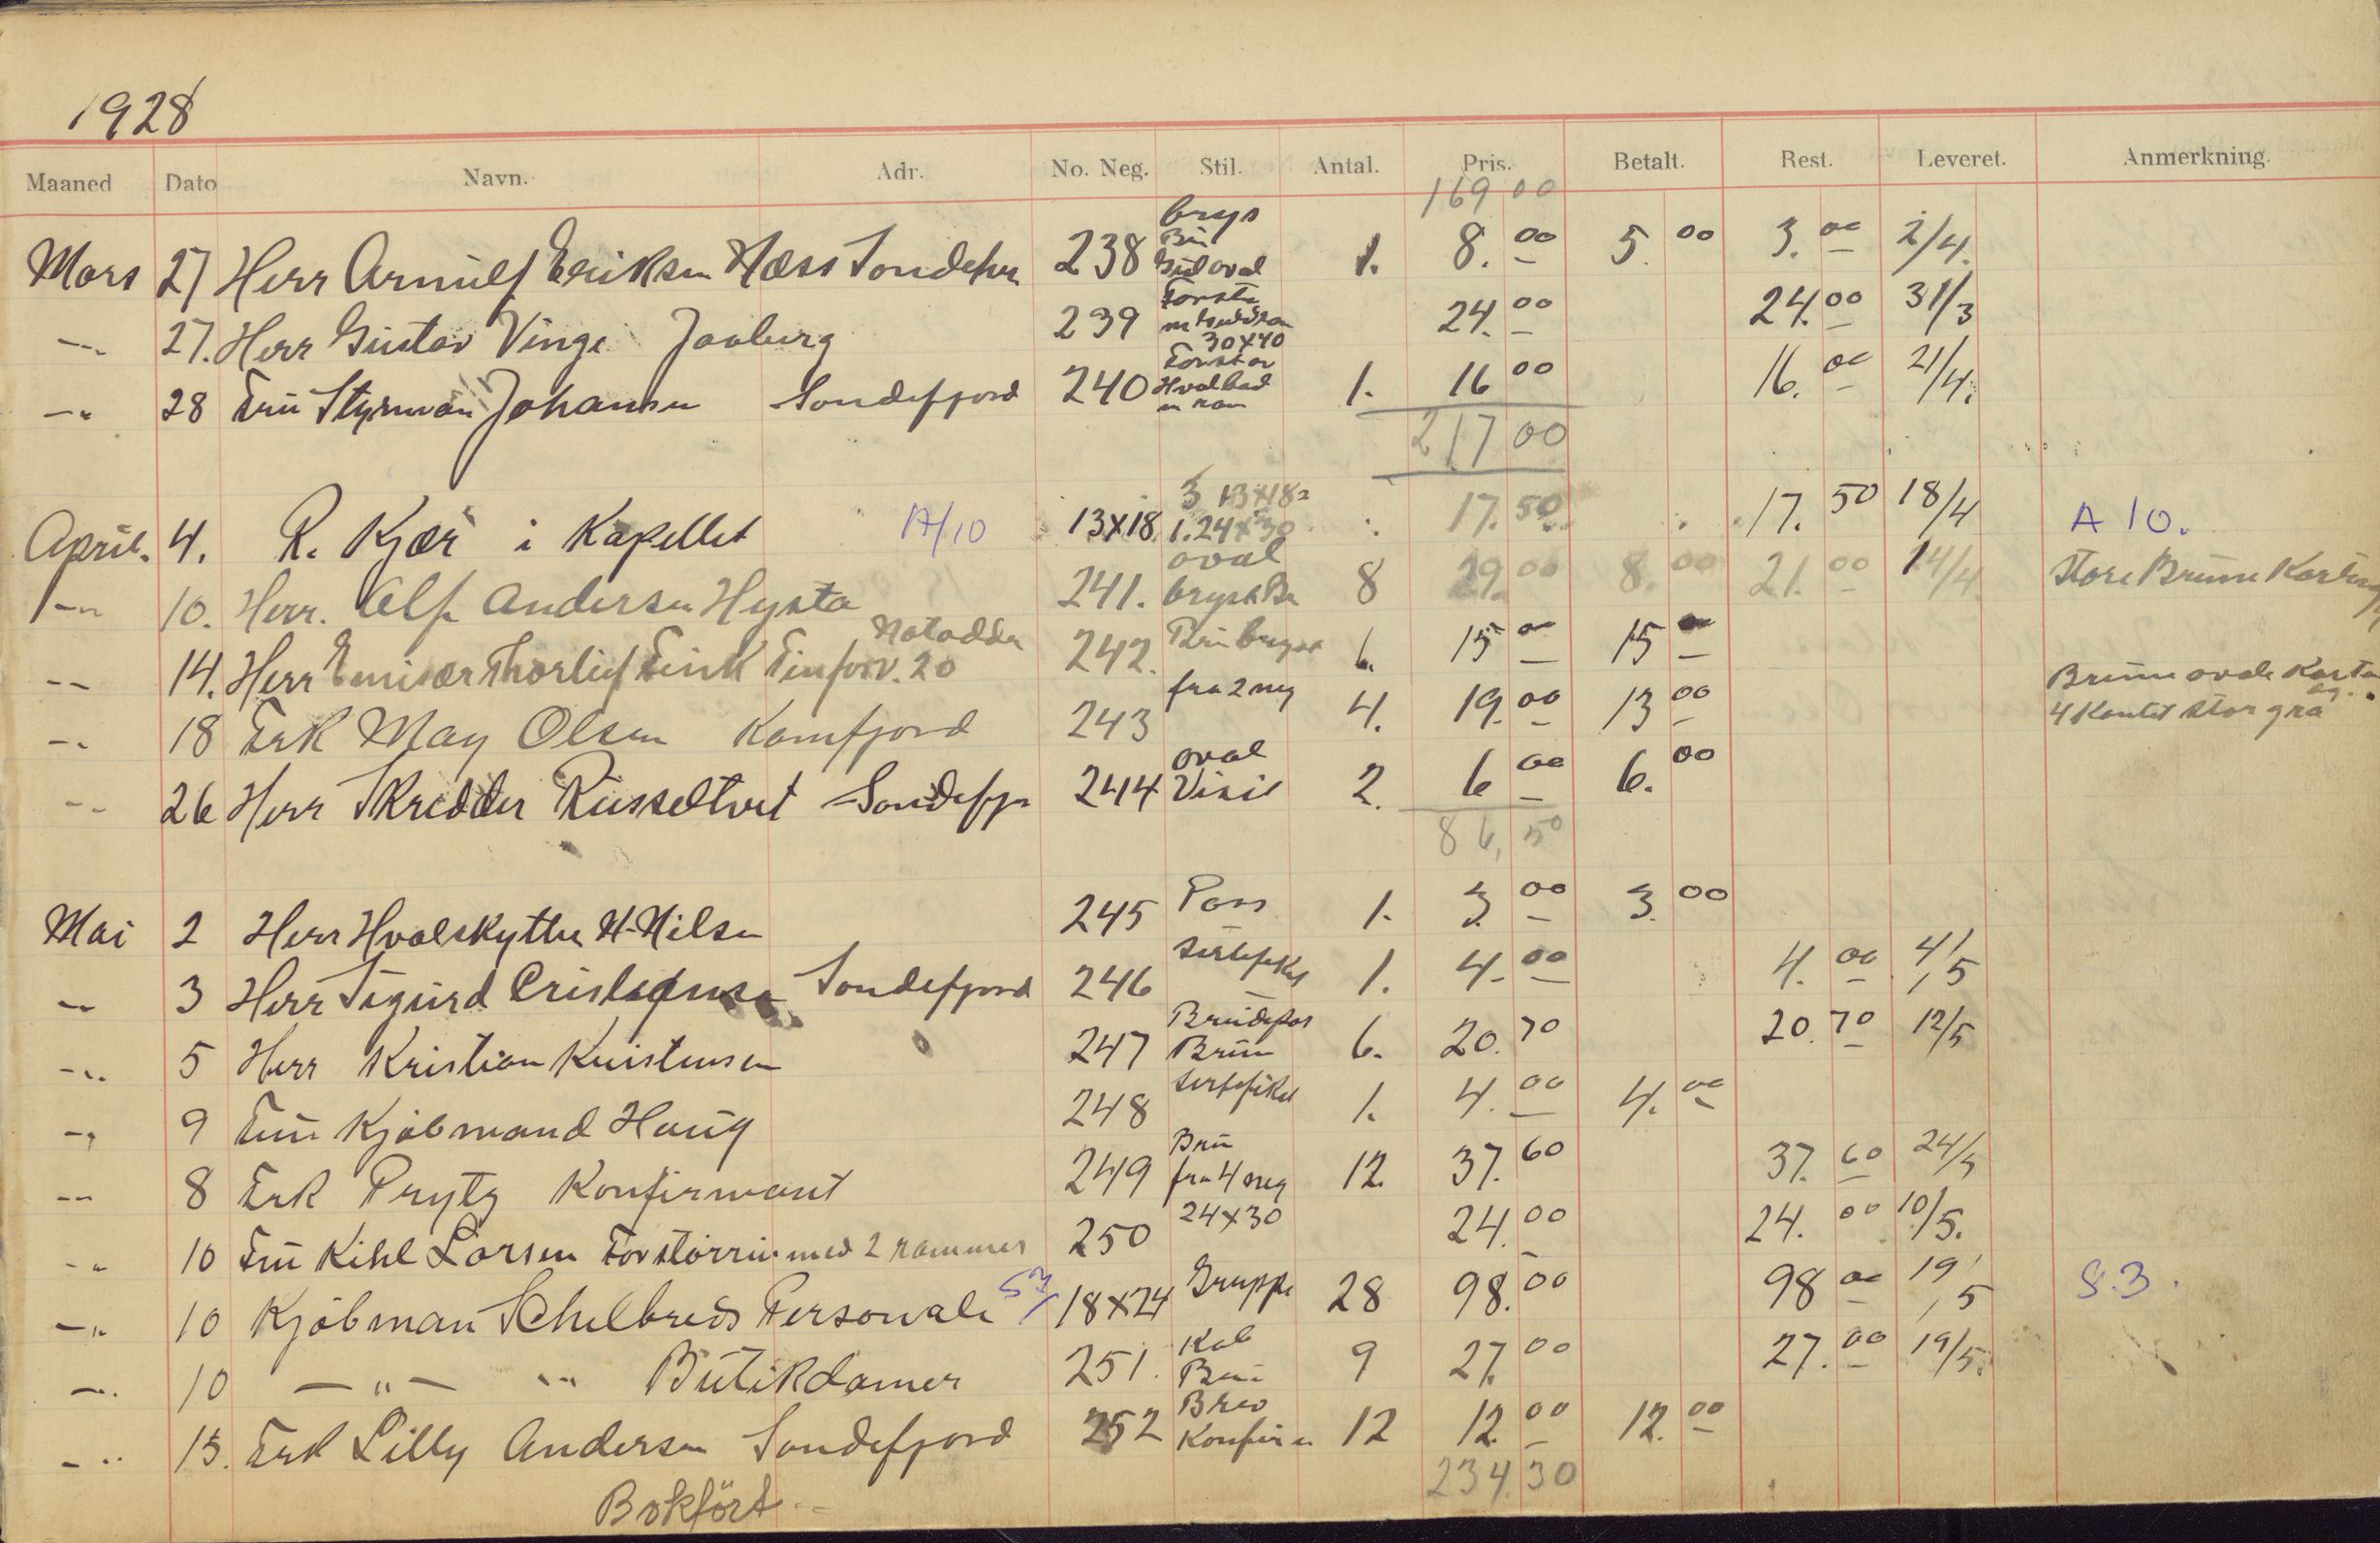 1928
Maaned Dato Navn. Adr. No. Neg. Stil. Antal. Pris. Betalt. Rest. Leveret. Anmerkning.
169 00
Mars 27 Herr Arnulf Eriksen Næss Sondefjor 238 brys Brū oval 1. 8. 00 5. 00 3. 00 2/4.
-"- 27. Herr Gustav Vinge Jaaberg 239 Forstø 30x40 24. 00 24. 00 31/3
-"- 28 Frū Styrman Johansen Sondefjord 240 Forstør Hvalbad m ram 1. 16 00 16. 00 21/4.
217 00
April. 4. R. Kjær i Kapellet A/10 13x18 3 13x18 1.24x30 17. 50 17. 50 18/4 A 10.
-"- 10. Herr. Alf Andersen Hysta 241. oval bryst Br 8 29. 00 8. 00 21. 00 14/4. Store Brune Kartong
-"- 14. Herr Emisær Thorlief Fink Notodden 242. Brū bryst 6. 15 00 15 00
-"- 18 Frk May Olsen Kamfjord 243 fra 2 neg 4. 19. 00 13 00 Brune ovale Karto og 4 Kantet stor grå
-"- 26 Herr Skredder Russeltvet Sondefjo 244 oval Visit 2. 6 00 6. 00
86, 50
Mai 2 Herr Hvalskytter N. Nilsen 245 Pass 1. 3. 00 3. 00
-"- 3 Herr Sigurd Sondefjord 246 Sertefikat 1. 4. 00 4. 00 4/5
-"- 5 Herr Kristian Kristensen 247 Brudepar Brun 6. 20. 70 20. 70 12/5
-"- 9 Frū Kjøbmand Haug 248 Sertefikat 1. 4. 00 4. 00
-"- 8 Frk Prytz Konfirmant 249 Brū fra 4 neg 12. 37. 60 37. 60 24/5
-"- 10 Frū Kihl Larsen Forstørrin med 2 rammer 250 24x30 24. 00 24. 00 10/5.
-"- 10 Kjøbman Schelbreds Personale S 3/ 18x24 Gruppe 28 98. 00 98 00 19/5 S.3.
-"- 10 -"- -"- Butikdamer 251. Kab Brū 9 27. 00 27. 00 19/5.
-"- 13. Frk Lilly Andersen Sandefjord 252 Brev Konfirm 12 12. 00 12. 00
234. 30
Bokført